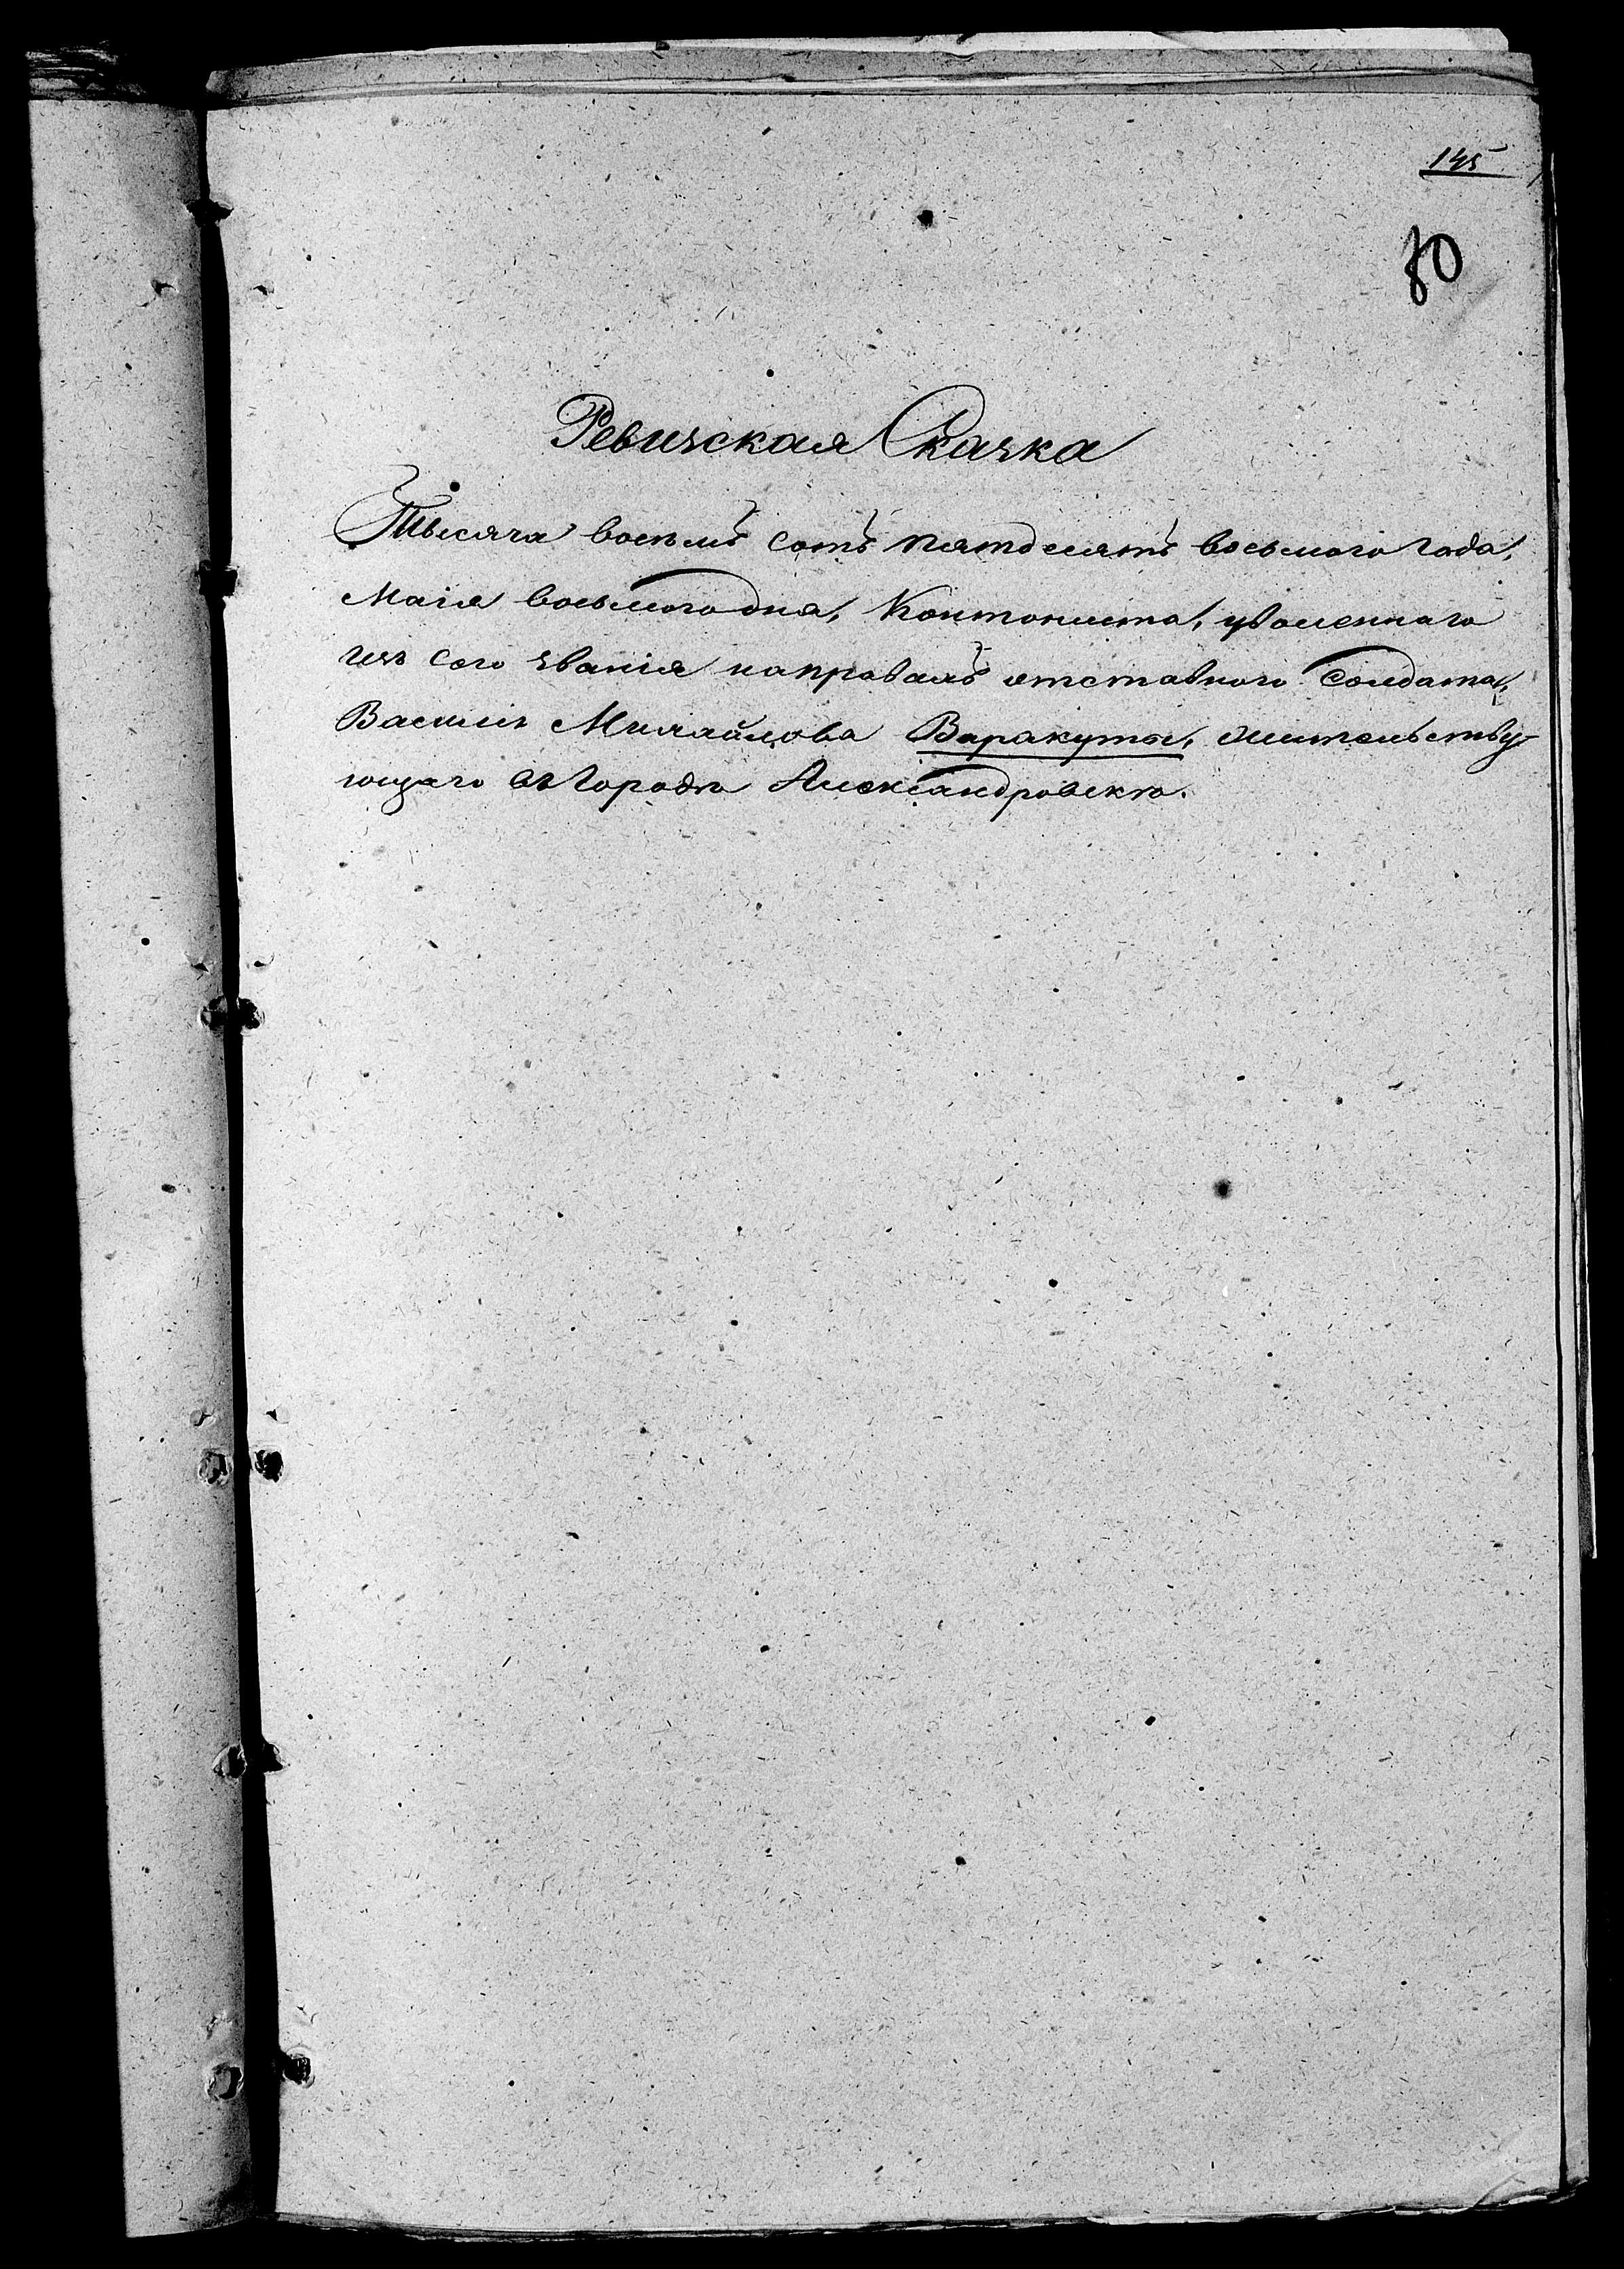 145
80
Ревизская Сказка
Тысяча восемь сотъ пятдесятъ восьмого года,
Маія восьмого дня, Контониста, уволеннаго
изъ сего званія направахъ отставного солдата,
Василія Михайлова Варакуты, жительству-
ющаго въ Городѣ Александровскѣ.